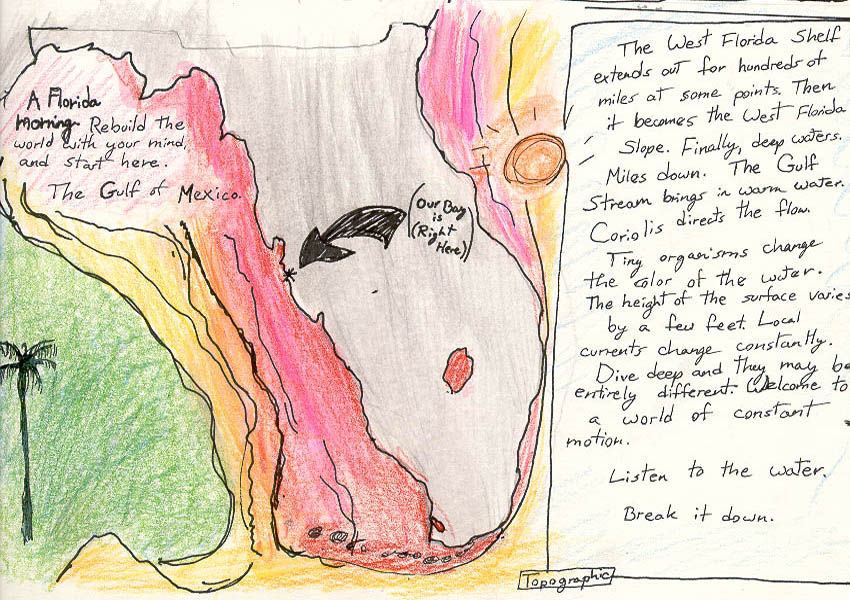 A Florida
morning. Rebuild the
world with your mind,
and start here.
The Gulf of Mexico.
Our Bay
is
(Right
Here)
The West Florida Shelf
extends out for hundreds of
miles at some points. Then
it becomes the West Florida
Slope. Finally, deep waters.
Miles down. The Gulf
Stream brings in warm water.
Coriolis directs the flow.
Tiny organisms change
the color of the water.
The height of the surface varies
by a few feet. Local
currents change constantly.
Dive deep and they may be
entirely different. Welcome to
a world of constant
motion.
Listen to the water.
Break it down.
Topographic